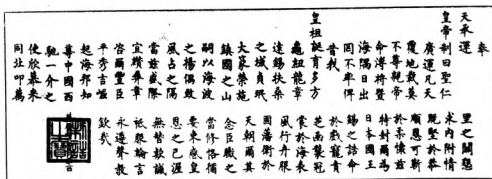 奉
天承運
皇帝制曰聖仁
廣運凡天
覆地載莫
不尊親帝
命溥將暨
海隅日出
罔不率俾
昔我
皇祖誕育多方
龜紐龍章
遠錫扶桑
之域貞珉
大篆榮施
鎮國之山
嗣以海波
之揚偶致
風占之隔
當茲盛際
宜纘彝章
咨爾豐臣
平秀吉崛
起海邦知
尊中國西
馳一介之
使欣慕來
同北叩萬
里之關懇
求內附情
既堅於恭
順恩可靳
於柔懷茲
特封爾為
日本國王
錫之誥命
於戲寵賁
芝函襲冠
裳於海表
風行卉服
固藩衛於
天朝爾其
念臣職之
當修恪循
要束感皇
恩之已渥
無替款誠
祗服綸言
永遵聲教
欽哉